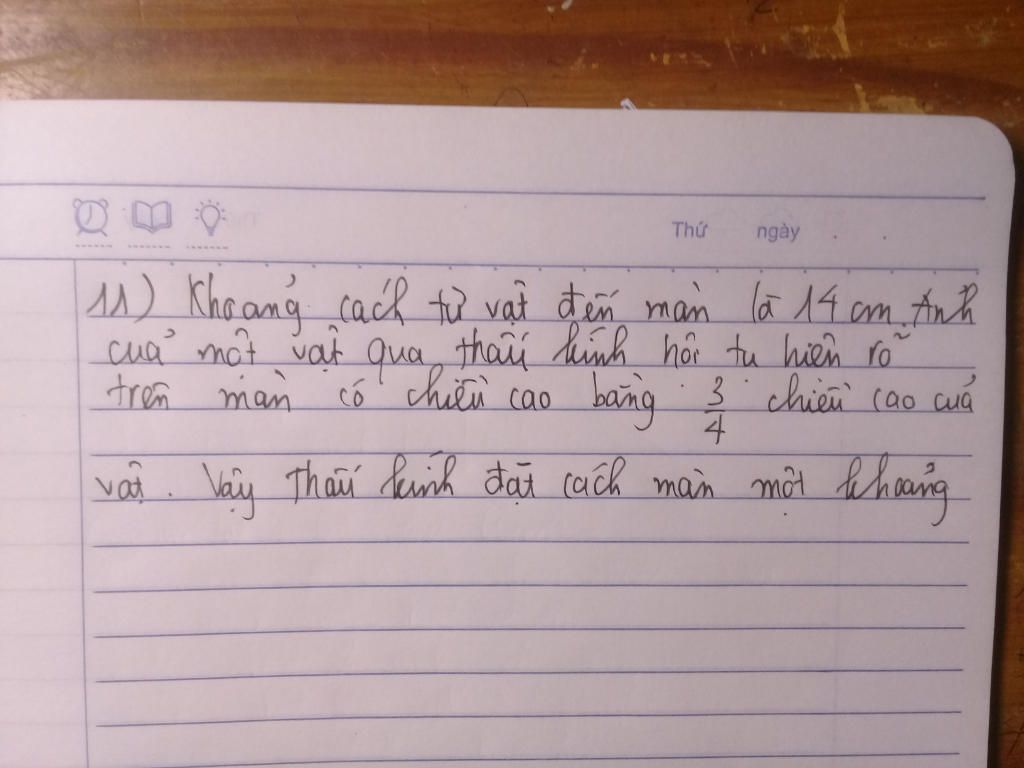 Thứ ngày
11) Khoảng cách từ vật đến màn là 14 cm. Ảnh
của một vật qua thấu kính hội tụ hiện rõ
trên màn có chiều cao bằng 3/4 chiều cao của
vật. Vậy thấu kính đặt cách màn một khoảng